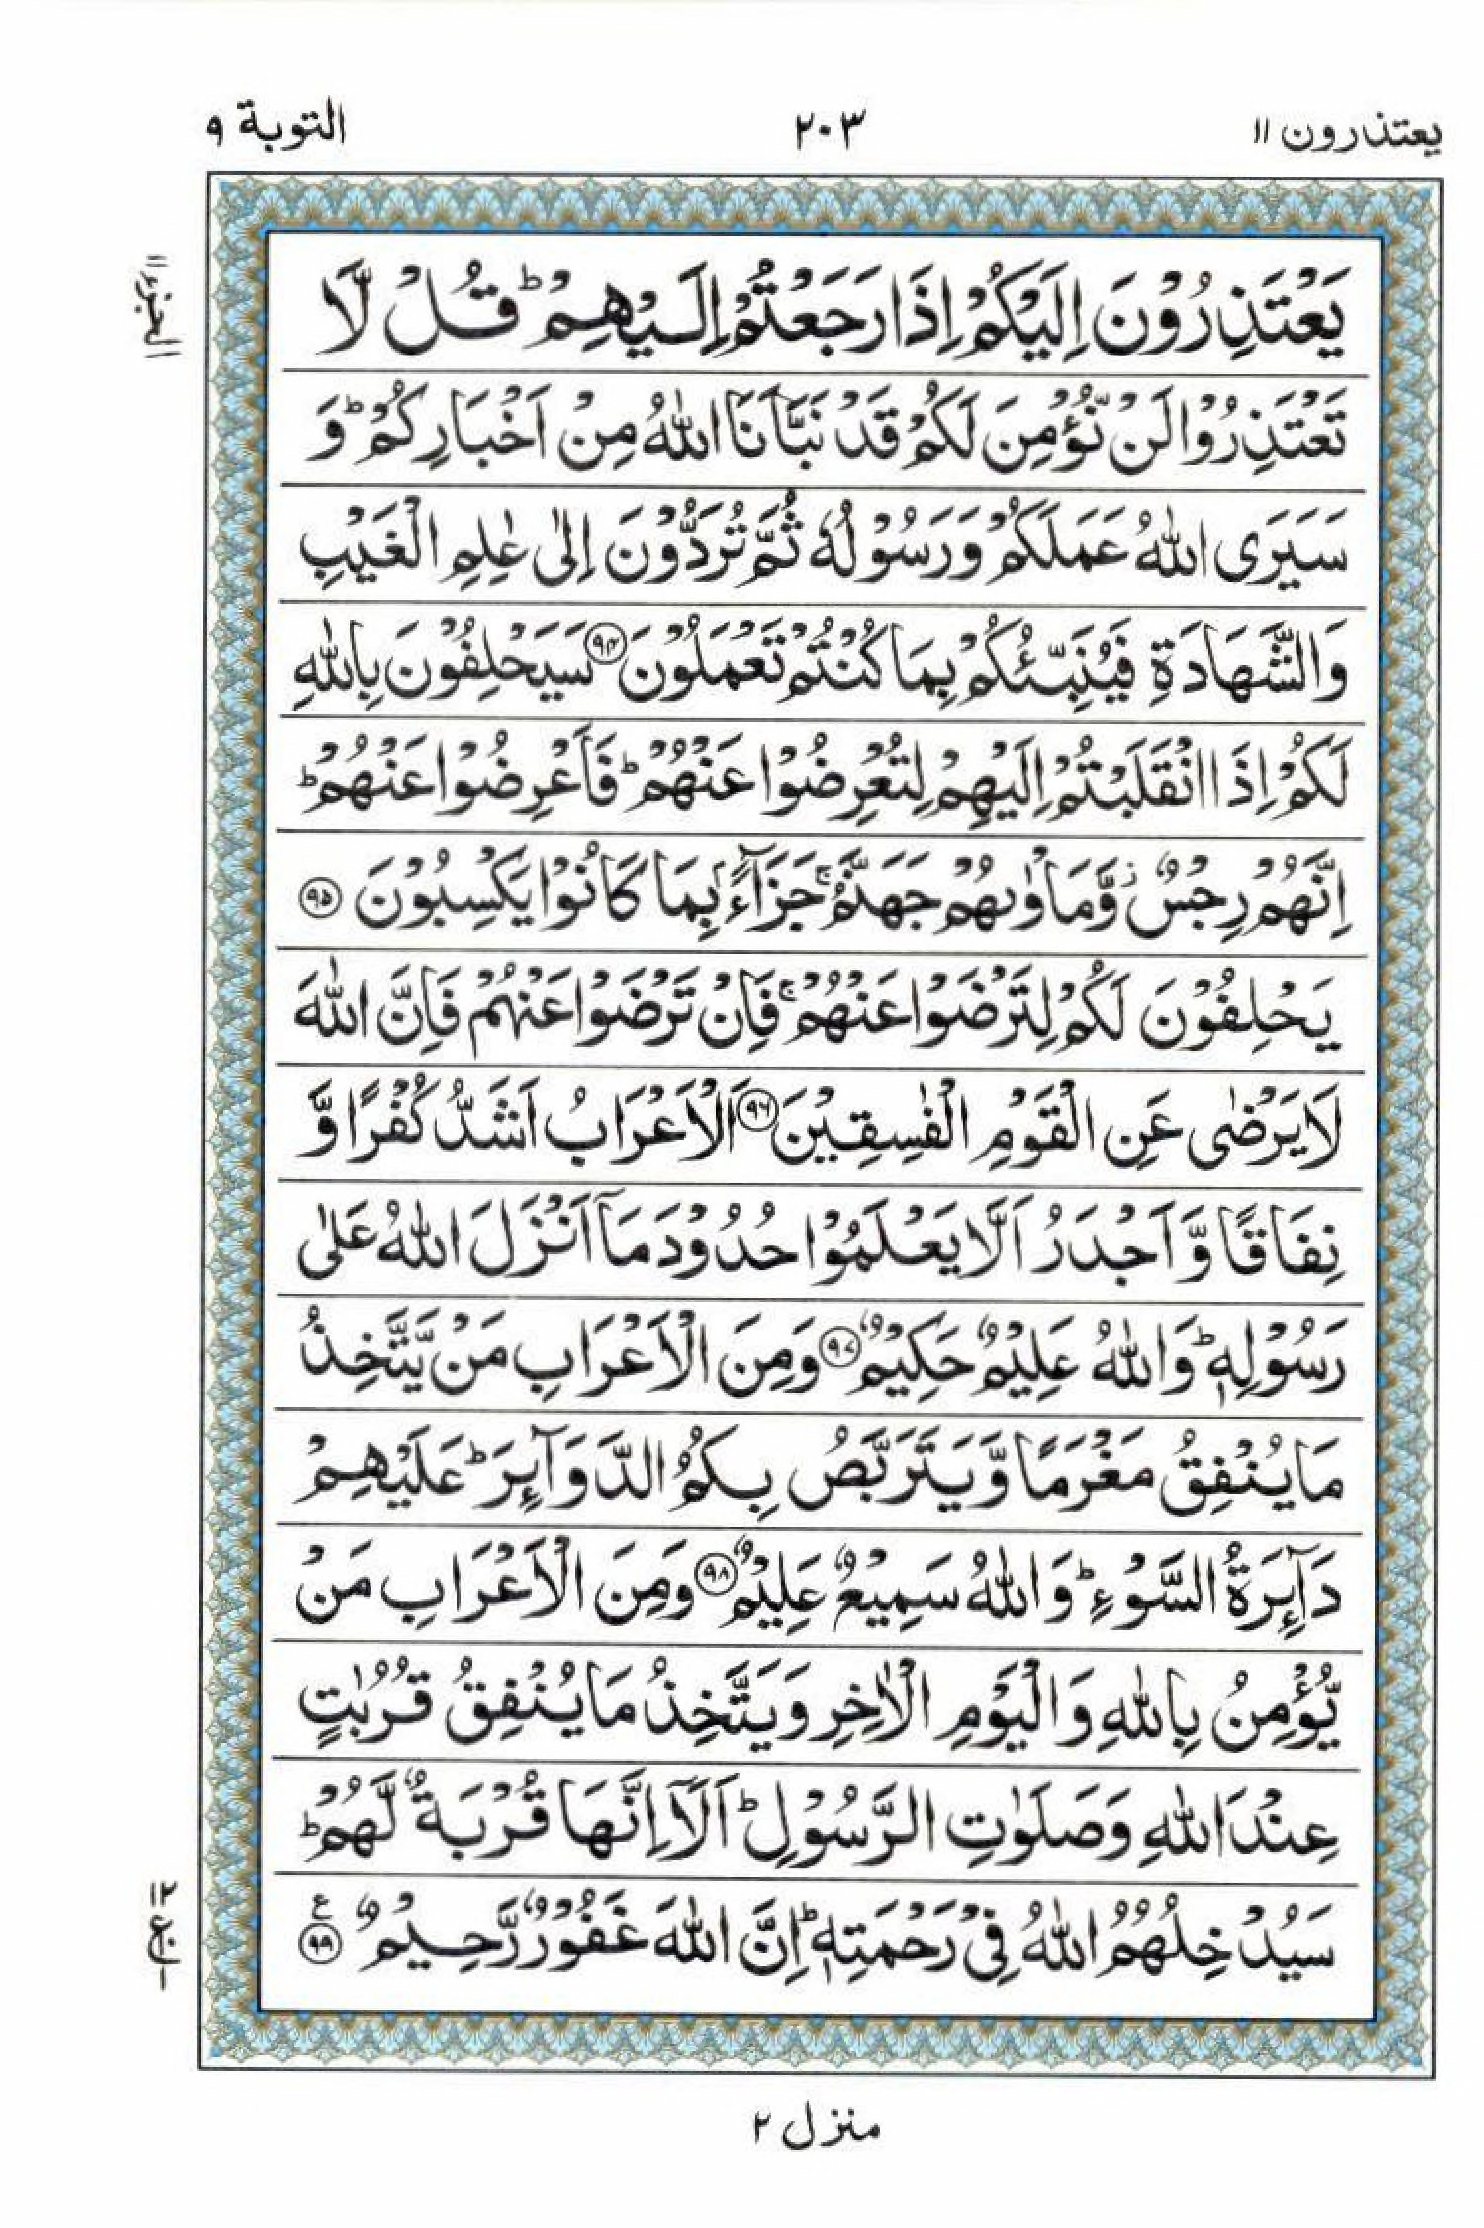 يعتذرون ١١
٢٠٣
التوبة ٩
الجزء ١١
يَعْتَذِرُوْنَ اِلَيْكُمْ اِذَا رَجَعْتُمْ اِلَيْهِمْ ؕ قُلْ لَّا
تَعْتَذِرُوْا لَنْ نُّؤْمِنَ لَكُمْ قَدْ نَبَّاَنَا اللّٰهُ مِنْ اَخْبَارِكُمْ ؕ وَ
سَيَرَى اللّٰهُ عَمَلَكُمْ وَرَسُوْلُهٗ ثُمَّ تُرَدُّوْنَ اِلٰى عٰلِمِ الْغَيْبِ
وَالشَّهَادَةِ فَيُنَبِّئُكُمْ بِمَا كُنْتُمْ تَعْمَلُوْنَ ﴿٩٤﴾ سَيَحْلِفُوْنَ بِاللّٰهِ
لَكُمْ اِذَا انْقَلَبْتُمْ اِلَيْهِمْ لِتُعْرِضُوْا عَنْهُمْ ؕ فَاَعْرِضُوْا عَنْهُمْ ؕ
اِنَّهُمْ رِجْسٌ ؗ وَّمَاْوٰىهُمْ جَهَنَّمُ ۚ جَزَآءًۢ بِمَا كَانُوْا يَكْسِبُوْنَ ﴿٩٥﴾
يَحْلِفُوْنَ لَكُمْ لِتَرْضَوْا عَنْهُمْ ۚ فَاِنْ تَرْضَوْا عَنْهُمْ فَاِنَّ اللّٰهَ
لَا يَرْضٰى عَنِ الْقَوْمِ الْفٰسِقِيْنَ ﴿٩٦﴾ اَلْاَعْرَابُ اَشَدُّ كُفْرًا وَّ
نِفَاقًا وَّاَجْدَرُ اَلَّا يَعْلَمُوْا حُدُوْدَ مَآ اَنْزَلَ اللّٰهُ عَلٰى
رَسُوْلِهٖ ؕ وَاللّٰهُ عَلِيْمٌ حَكِيْمٌ ﴿٩٧﴾ وَمِنَ الْاَعْرَابِ مَنْ يَّتَّخِذُ
مَا يُنْفِقُ مَغْرَمًا وَّيَتَرَبَّصُ بِكُمُ الدَّوَآئِرَ ؕ عَلَيْهِمْ
دَآئِرَةُ السَّوْءِ ؕ وَاللّٰهُ سَمِيْعٌ عَلِيْمٌ ﴿٩٨﴾ وَمِنَ الْاَعْرَابِ مَنْ
يُّؤْمِنُ بِاللّٰهِ وَالْيَوْمِ الْاٰخِرِ وَيَتَّخِذُ مَا يُنْفِقُ قُرُبٰتٍ
عِنْدَ اللّٰهِ وَصَلَوٰتِ الرَّسُوْلِ ؕ اَلَآ اِنَّهَا قُرْبَةٌ لَّهُمْ ؕ
سَيُدْخِلُهُمُ اللّٰهُ فِيْ رَحْمَتِهٖ ؕ اِنَّ اللّٰهَ غَفُوْرٌ رَّحِيْمٌ ﴿٩٩﴾ ع
١٢
ع
١
منزل ٢